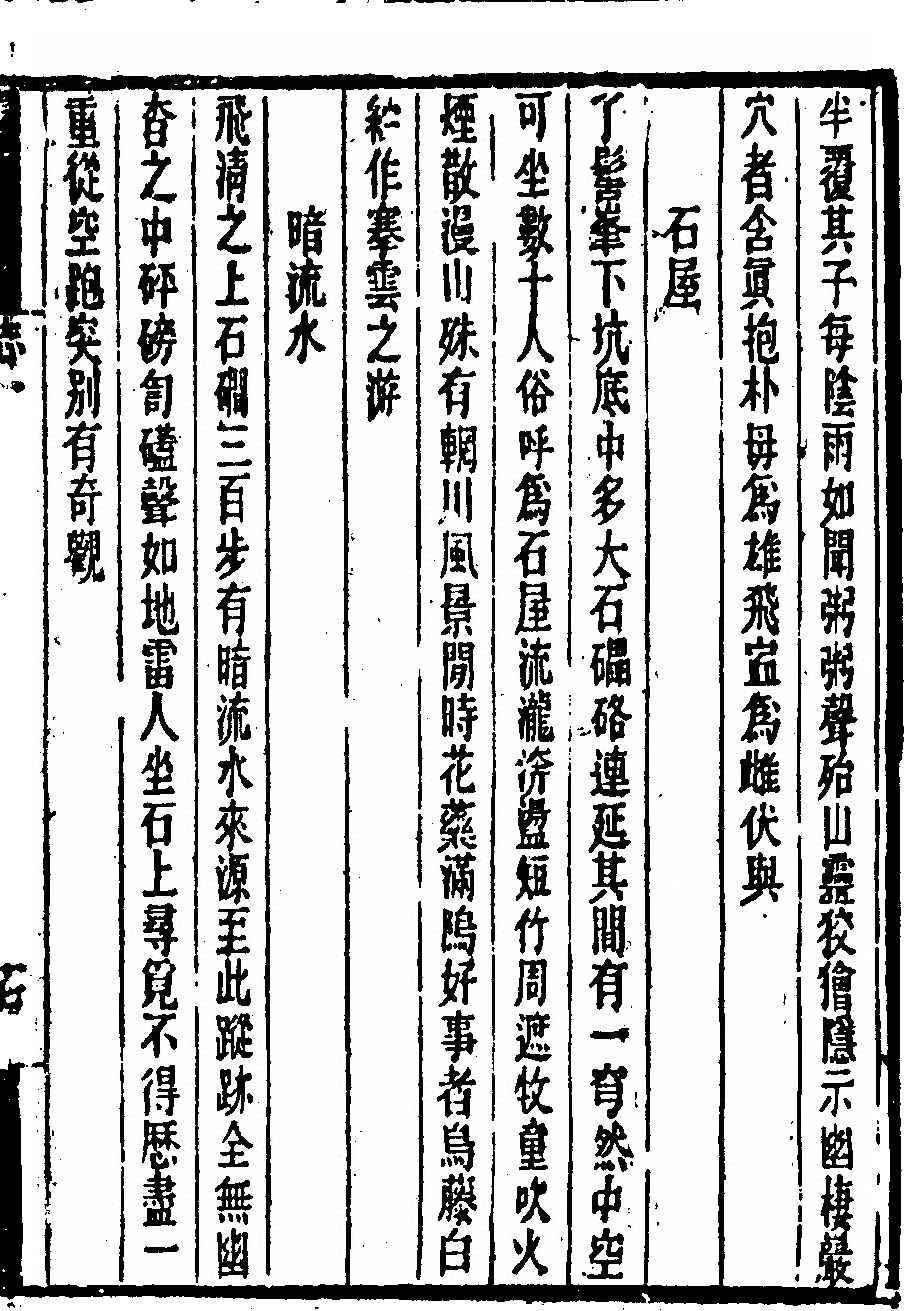 半覆其子每陰雨如聞粥粥聲殆山靈狡獪隱示幽棲巖
穴者含眞抱朴毋爲雄飛宜爲雌伏與
石屋
了髻峯下坑底中多大石礧硌連延其間有一穹然中空
可坐數十人俗呼爲石屋流瀧滂盪短竹周遮牧童吹火
煙散漫山殊有輞川風景閒時花藥滿隖好事者烏藤白
紵作搴雲之游
暗流水
飛淸之上石磵三百步有暗流水來源至此蹤跡全無幽
杳之中砰磅訇礚聲如地雷人坐石上尋覓不得歷盡一
重從空跑突別有奇觀
志